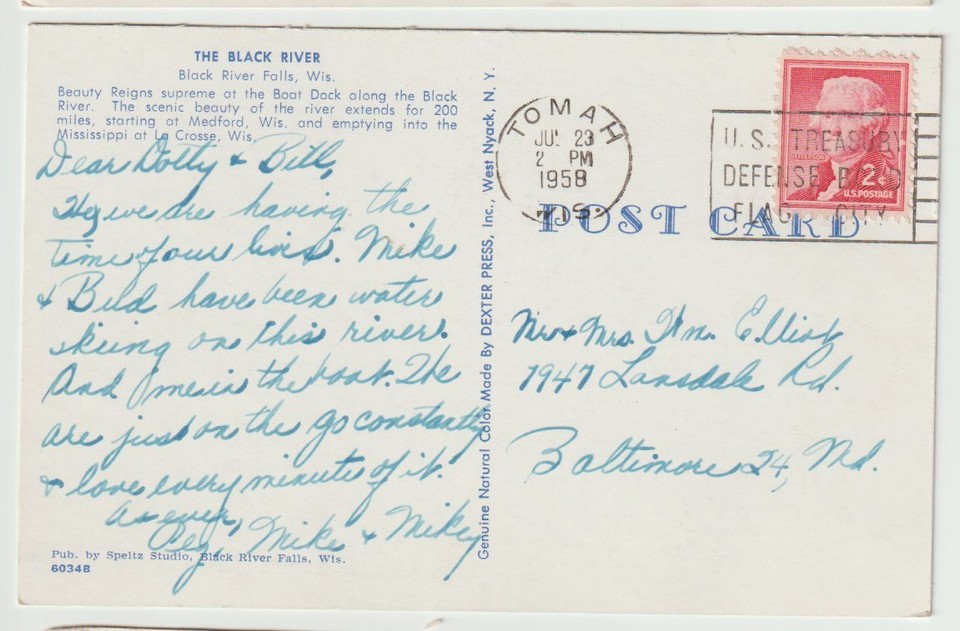 THE BLACK RIVER
Black River Falls, Wis.
Beauty Reigns supreme at the Boat Dock along the Black
River. The scenic beauty of the river extends for 200
miles, starting at Medford, Wis. and emptying into the
Mississippi at La Crosse, Wis.
Dear Dotty & Bill,
we are having the
time of our lives. Mike
& Bud have been water
skiing on this river.
And I me in the boat. We
are just on the go constantly
& love every minute of it.
As ever,
Peg, Mike & Mikey
Pub. by Speltz Studio, Black River Falls, Wis.
6034B
Genuine Natural Color Made By DEXTER PRESS, Inc., West Nyack, N. Y.
TOMAH
JUL 23
2 PM
1958
WIS.
U.S. TREASURY
DEFENSE BOND
FLAG CITY
JEFFERSON
2¢
U.S. POSTAGE
POST CARD
Mr & Mrs. Wm. Elliot
1947 Lansdale Rd.
Baltimore 24, Md.